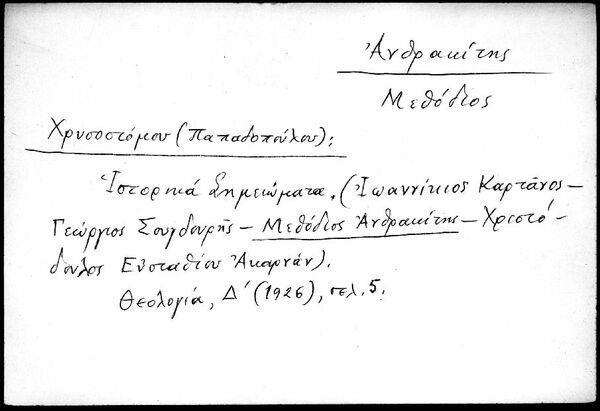 Ἀνθρακίτης
Μεθόδιος
Χρυσοστόμου (Παπαδοπούλου):
Ἱστορικά Σημειώματα. (Ἰωαννίκιος Καρτάνος –
Γεώργιος Σουγδουρῆς – Μεθόδιος Ἀνθρακίτης – Χριστό-
δουλος Εὐσταθίου Ἀκαρνάν).
Θεολογία, Δ΄ (1926), σελ. 5.